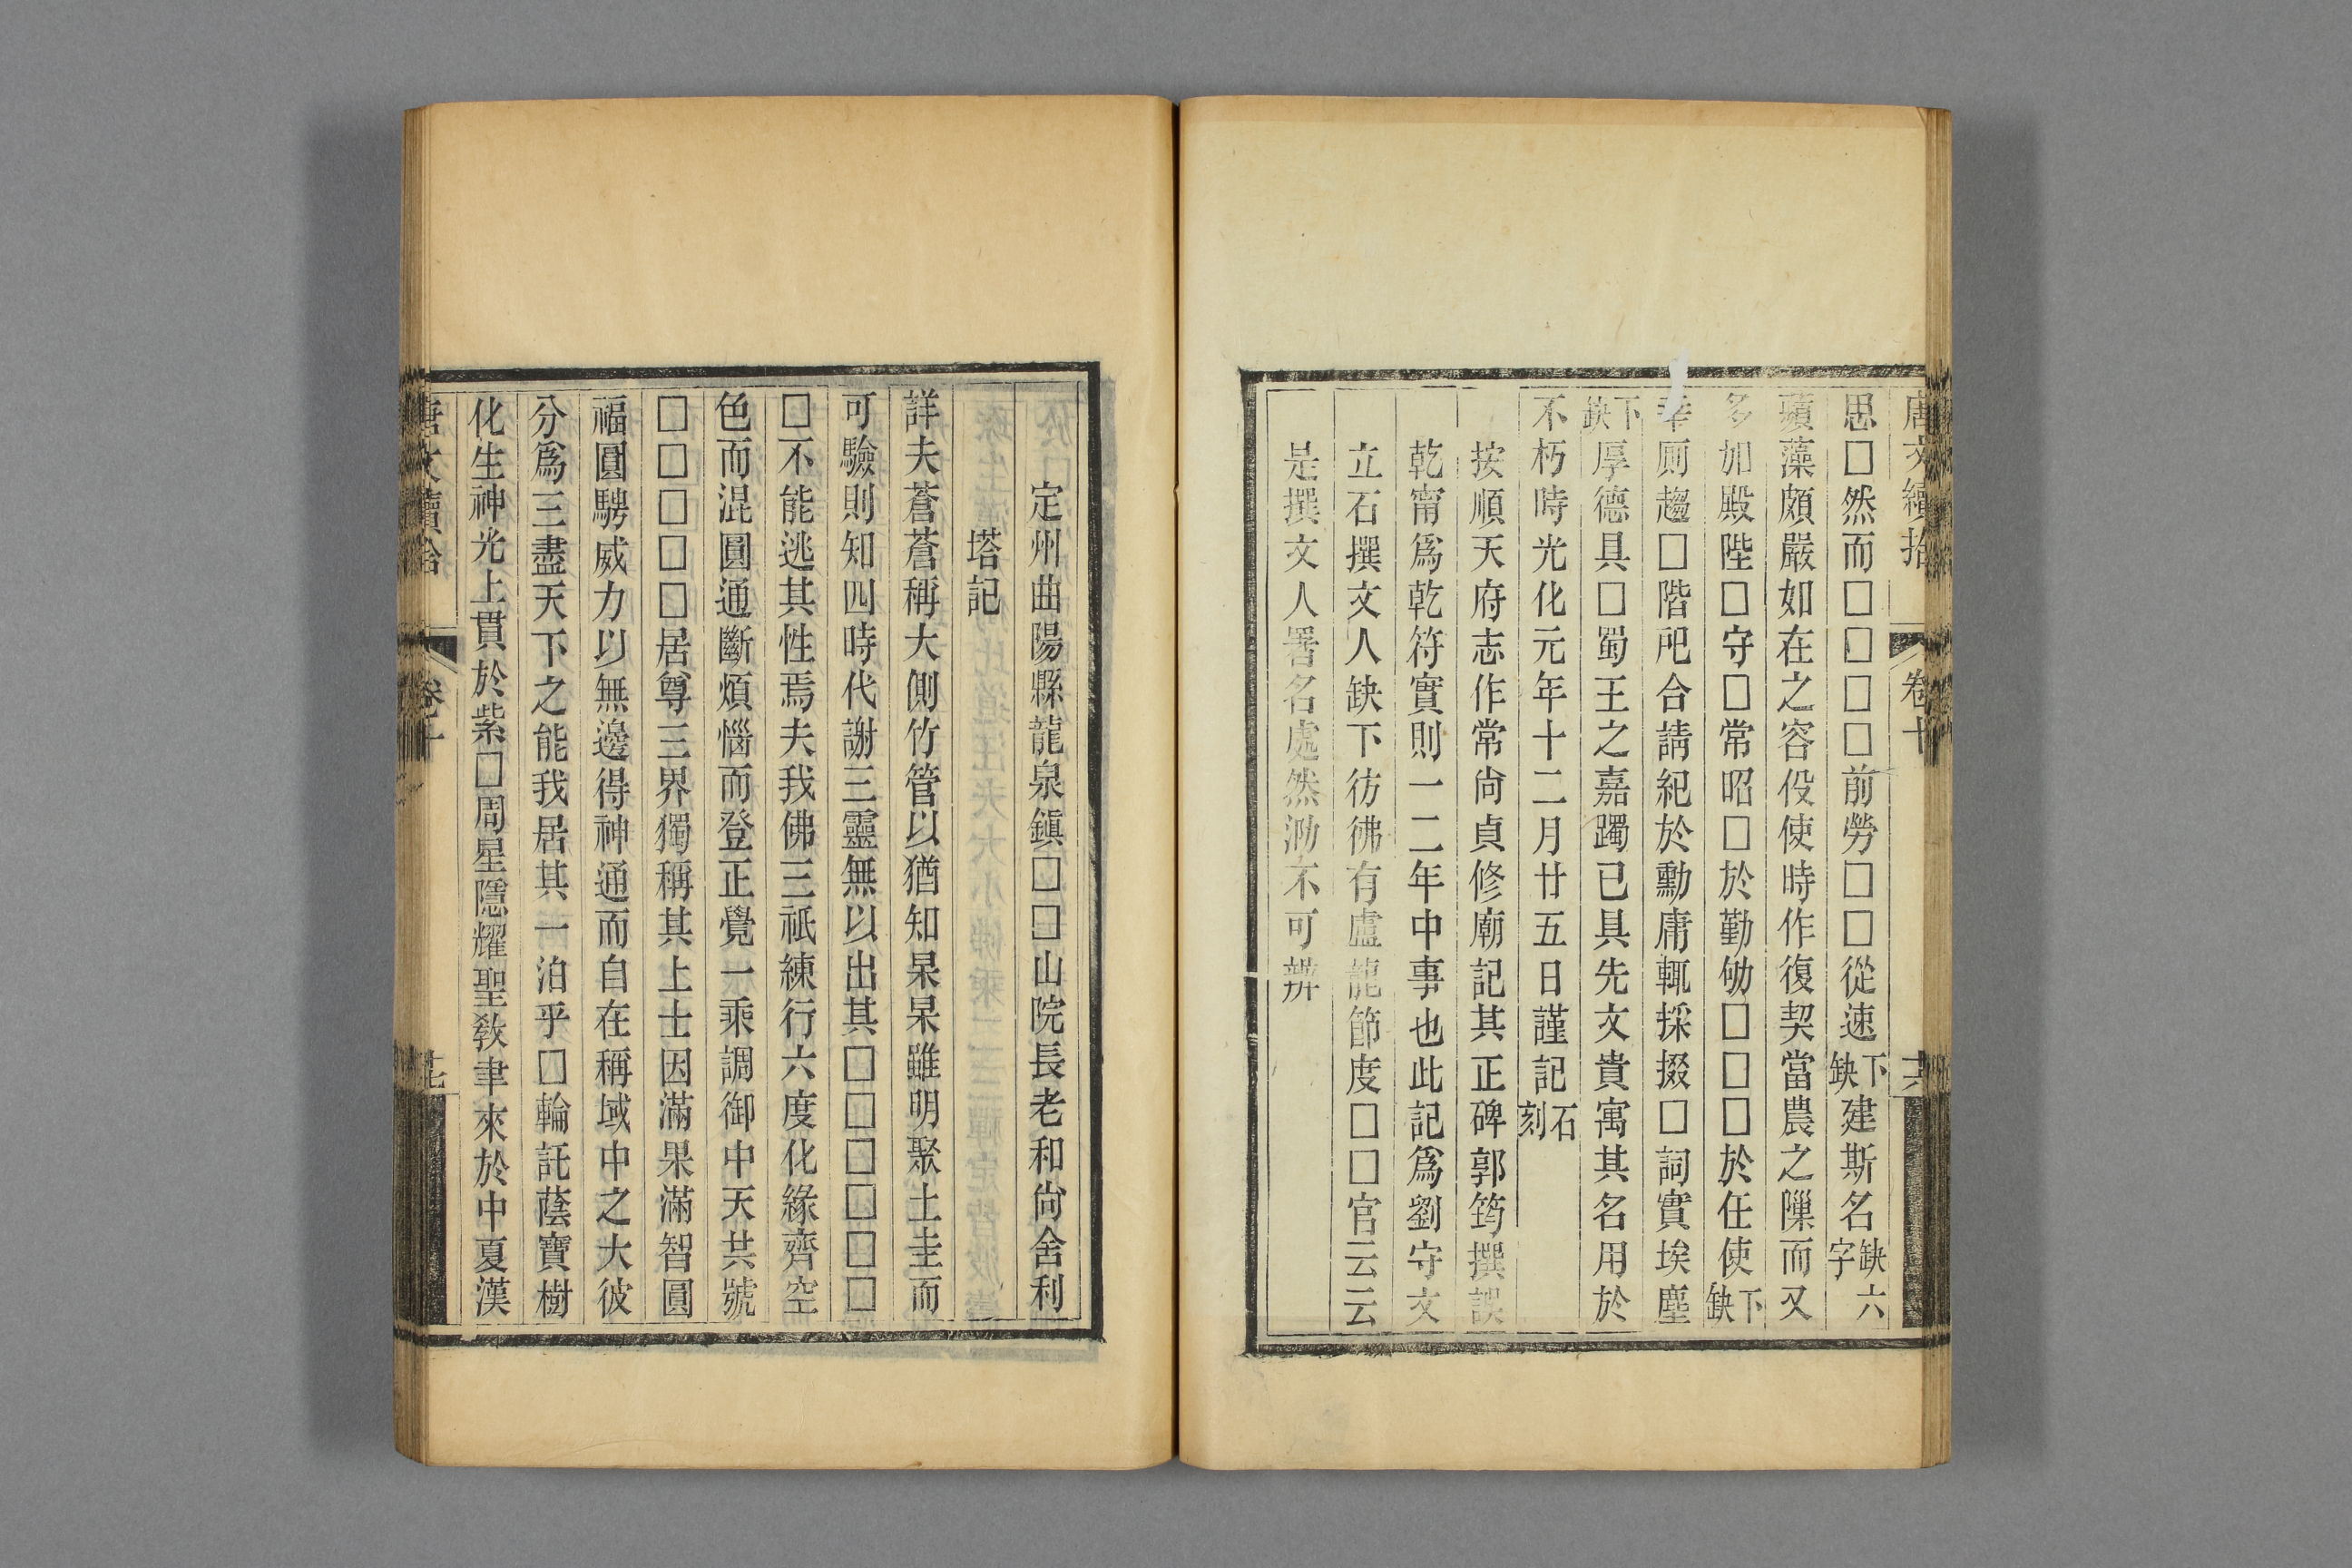 唐文續拾 卷十 十六
思□然而□□□□前勞□□從速下缺建斯名缺六字
蘋藻頗嚴如在之容伇使時作復契當農之隟而又
多加殿陛□守□常昭□於勤劬□□□於任使下缺
幸厠趨□階戺合請紀於勳庸輒採掇□詞實埃塵
下缺厚德具□蜀王之嘉躅已具先文貴寓其名用於
不朽時光化元年十二月廿五日謹記石刻
按順天府志作常尙貞修廟記其正碑郭筠撰誤
乾甯爲乾符實則一二年中事也此記爲劉守文
立石撰文人缺下彷彿有盧龍節度□□官云云
是撰文人署名處然泐不可辨
定州曲陽縣龍泉鎮□□山院長老和尙舍利
塔記
詳夫蒼蒼稱大側竹管以猶知杲杲雖明聚土圭而
可驗則知四時代謝三靈無以出其□□□□□□
□不能逃其性焉夫我佛三祇練行六度化緣齊空
色而混圓通斷煩惱而登正覺一乘調御中天共號
□□□□□居尊三界獨稱其上士因滿果滿智圓
福圓騁威力以無邊得神通而自在稱域中之大彼
分爲三盡天下之能我居其一泊乎□輪託蔭寶樹
化生神光上貫於紫□周星隱耀聖敎聿來於中夏漢
唐文續拾 卷十 十七